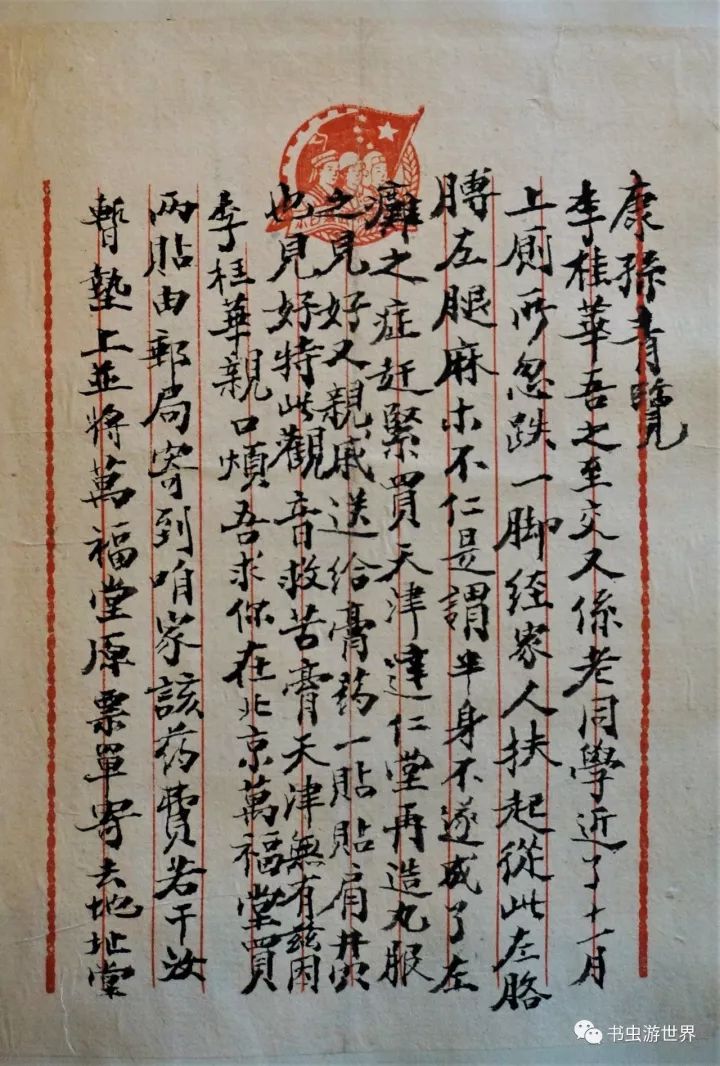 康孫青覽
李桂華吾之至交又係老同學近了十一月
上厠所忽跌一脚经家人扶起從此左胳
膊左腿麻木不仁是謂半身不遂成了左
癱之症赶緊買天津達仁堂再造丸服
之見好又親戚送给膏药一貼貼肩井
也見好特此觀音救苦膏天津無有兹因
李桂華親口煩吾求你在北京萬福堂買
两貼由郵局寄到咱家該药費若干汝
暫墊上並將萬福堂原票單寄去地址棠
书虫游世界